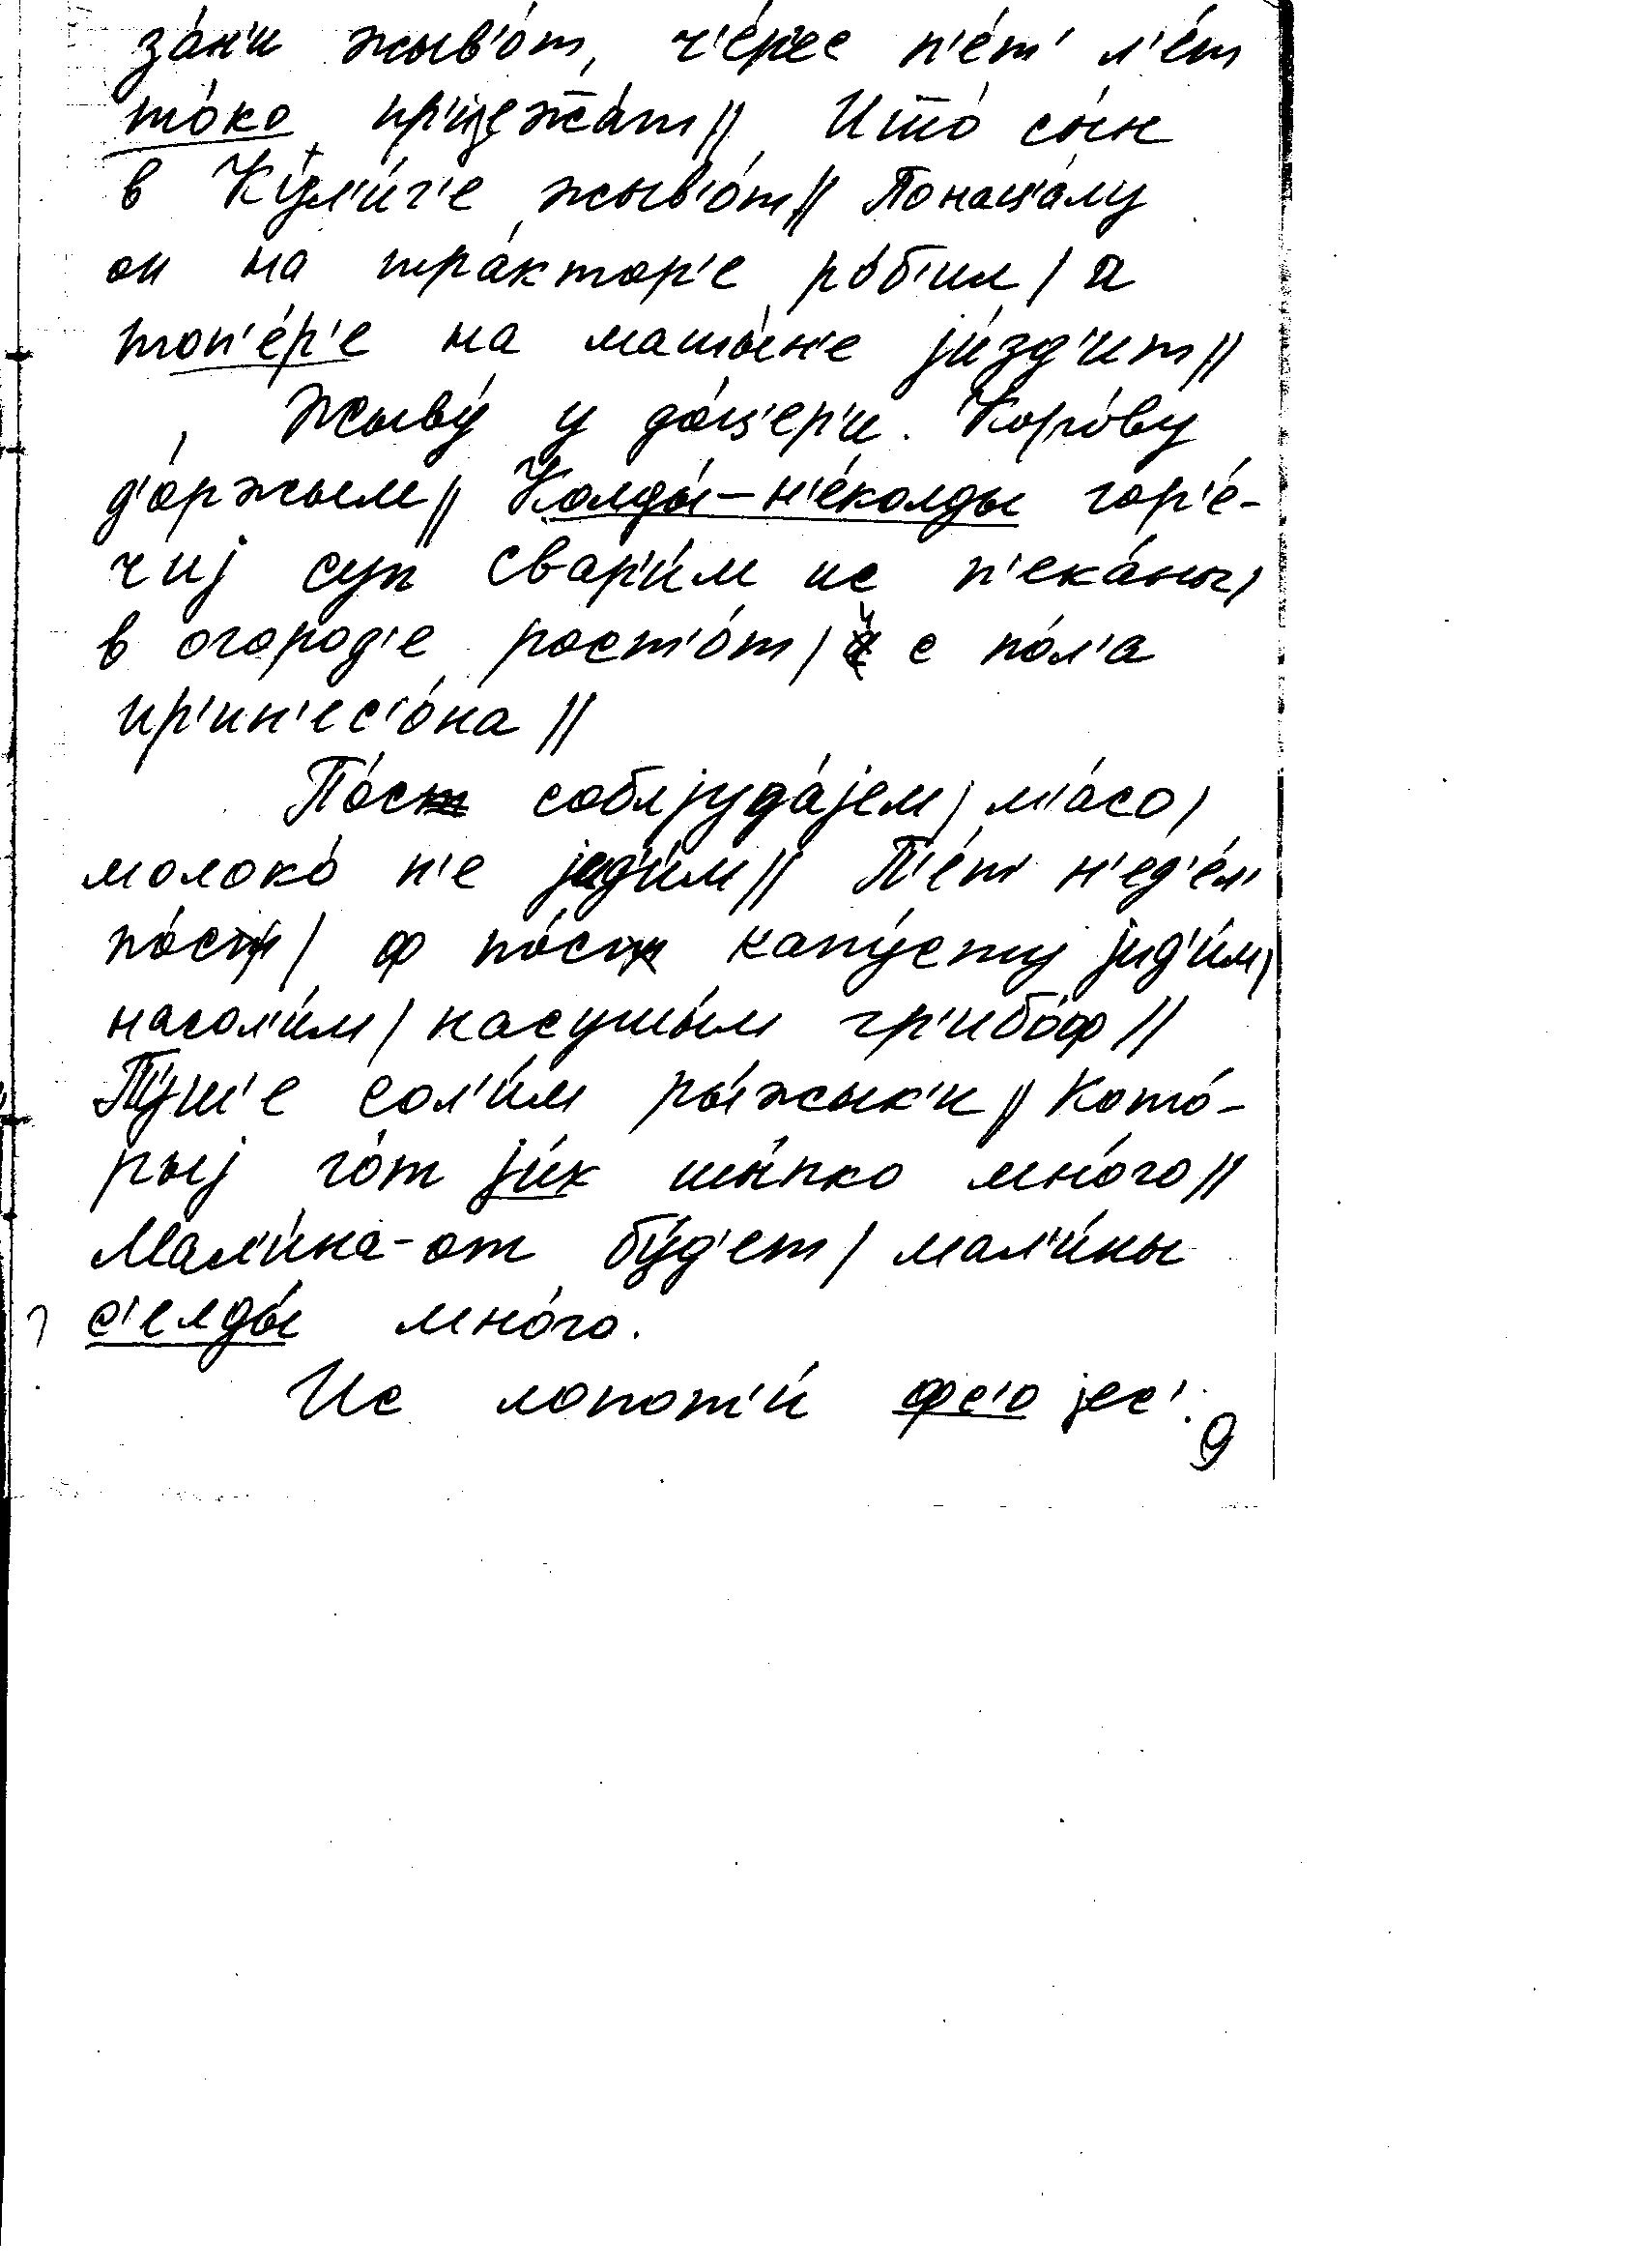 за́н'и жыв'о́т, ч'е́р'ес п'е́т' л'е́т
то́ко пр'ијежжа́т// Ишшо́ сы́н
в Кул'и́г'е жыв'о́т// Понац'а́лу
он на тра́ктор'е ро́б'ил / а
топ'е́р'е на машы́н'е jи́зд'ит//
Жыву́ у до́ц'ер'и. Коро́ву
д'о́ржым// Колды́–н'е́колды гор'е́-
чиj суп свар'и́м ис п'ека́ны/
в огород'е рост'о́т / и с по́л'а
пр'ин'ес'о́на //
По́с соблjуда́jем / м'а́со /
молоко́ н'е jид'и́м// П'е́т' н'ед'е́л'
по́с / ф по́с капу́сту jид'и́м/
насол'и́м / насушы́м гр'ибо́ф //
Пу́ш'е сол'и́м ры́жык'и // Кото́-
рыj го́т jи́х шы́пко мно́го//
Мал'и́на-от бу́д'ет / мал'и́ны
с'елды́ мно́го.
Ис лопот'и́ фс'о jес'.
9